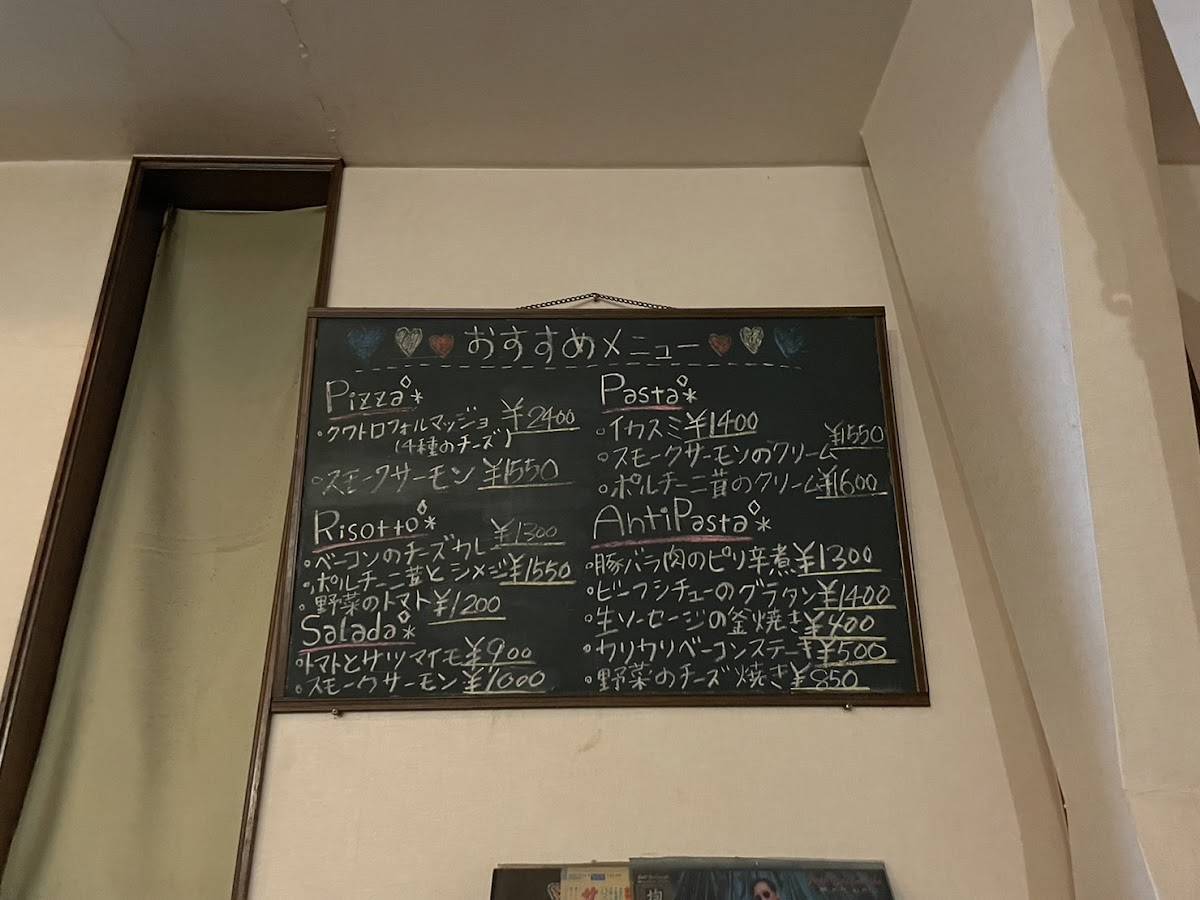 おすすめメニュー
Pizza
・クワトロフォルマッジョ ¥2400
(4種のチーズ)
・スモークサーモン ¥1550
Risotto
・ベーコンのチーズカレ ¥1300
・ポルチーニ茸とシメジ ¥1550
・野菜のトマト ¥1200
Salada
・トマトとサツマイモ ¥900
・スモークサーモン ¥1000
Pasta
・イカスミ ¥1400
・スモークサーモンのクリーム ¥1550
・ポルチーニ茸のクリーム ¥1600
AntiPasta
・豚バラ肉のピリ辛煮 ¥1300
・ビーフシチューのグラタン ¥1400
・生ソーセージの釜焼き ¥400
・カリカリベーコンステーキ ¥500
・野菜のチーズ焼き ¥850